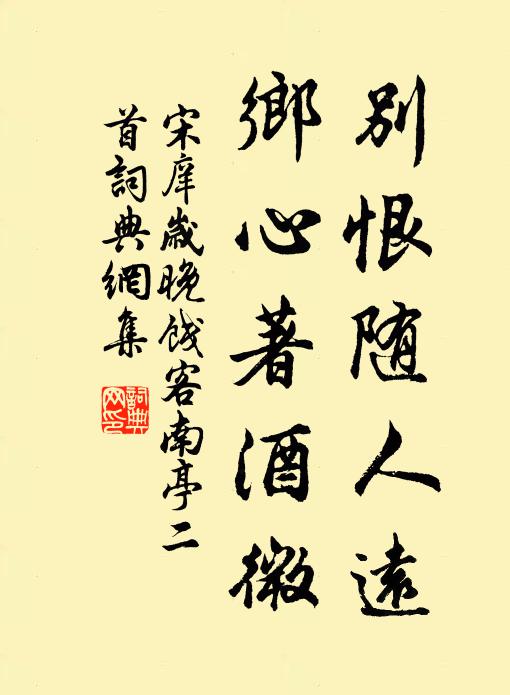 別恨随人遠
鄉心著酒微
宋庠歲晚餞客南亭二
首詞典網集
詞典
网印